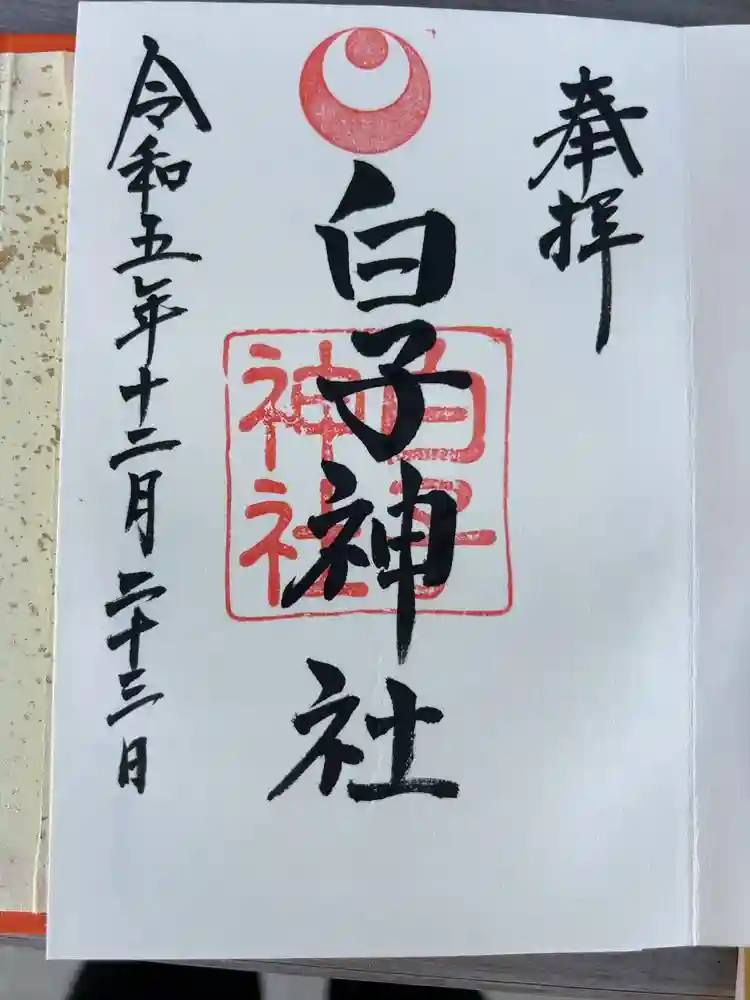 奉拝
白子神社
白子
神社
令和五年十二月二十三日